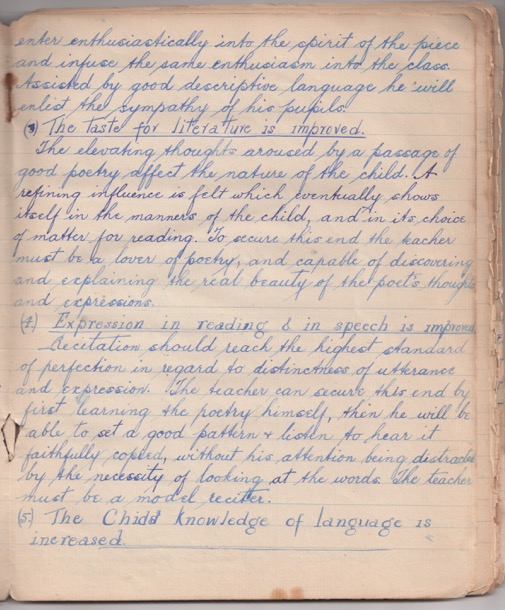 enter enthusiastically into the spirit of the piece
and infuse the same enthusiasm into the class.
Assisted by good descriptive language he will
enlist the sympathy of his pupils.
(3) The taste for literature is improved.
The elevating thoughts aroused by a passage of
good poetry affect the nature of the child. A
refining influence is felt which eventually shows
itself in the manners of the child, and in its choice
of matter for reading. To secure this end the teacher
must be a lover of poetry, and capable of discovering
and explaining the real beauty of the poet's thoughts
and expressions.
(4.) Expression in reading & in speech is improved.
Recitation should reach the highest standard
of perfection in regard to distinctness of utterance
and expression. The teacher can secure this end by
first learning the poetry himself, then he will be
able to set a good pattern + listen to hear it
faithfully copied, without his attention being distracted
by the necessity of looking at the words. The teacher
must be a model reciter.
(5.) The Child's Knowledge of language is
increased.